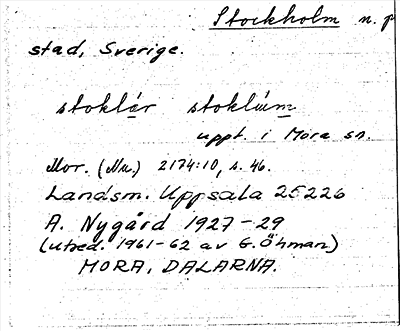 Stockholm n. p
stad, Sverige.
stoklár stoklúm
uppt. i Mora sn.
Mor. (Nu.) 2174:10, s. 46.
Landsm. Uppsala 25226
A. Nygård 1927-29
(utred. 1961-62 av G. Öhman)
MORA, DALARNA.